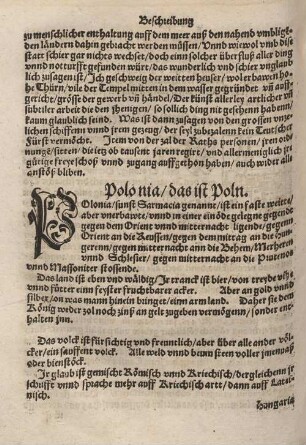 Beschreibung
zu menschlicher enthaltung auff dem meer auß den nahend vmbligē
den ländern dahin gebracht werden müssen/ Vnnd wiewol vmb dise
statt schier gar nichts wechset/ doch einn solcher überfluß aller ding
vnnd notturfft gefunden würt/ das wunderlich vnd schier vnglaub
lich zusagen ist/ Ich geschweig der weitten heuser/ wolerbawen ho
he Thürn/ vile der Tempel mitten in dem wasser gegründet vñ auff
gericht/ grösse der gewerb vñ händel/ Der künst allerley artlicher vñ
subtiler arbeit die den ihenigen/ so söllich ding nit gesehenn habenn/
kaum glaublich seind. Was ist dann zusagen von den grossen vnze
lichen schiffenn vnnd jrem gezeug/ der seyl zubezalenn kein Teutscher
Fürst vermöcht. Item von der zal der Raths personen/ jren ordi
nungē/ sitten/ die ietz ob tausent jaren regirt/ vnd allermeniglich jr
gütige freye schoß vnnd zugang auffgethon haben/ auch wider alle
anstöß bliben.
Polonia/ das ist Poln.
POlonia/ sunst Sarmacia genant/ ist ein faste weitte/
aber vnerbawte/ vnnd in einer einöde gelegne gegend
gegen dem Orient vnnd mitternacht ligende/ gegenn
Orient an die Reussen/ gegen dem mittag an die Hun
gerenn/ gegen mitternacht ann die Behem/ Merheren
vnnd Schlesier/ gegen mitternacht an die Prutenos
vnnd Massoniter stossende.
Das land ist eben vnd wäldig/ Ir tranck ist bier/ von treyde
vnd fütter ein feyster fruchtbarer acker. Aber an gold vnnd
silber/ on was mann hinein bringet/ einn arm land. Daher sie dem
König weder zol noch zinß an gelt zugeben vermögenn/ sonder ent
halten jnn.
Das volck ist fürsichtig vnd freuntlich/ aber über alle ander völ
cker/ ein sauffent volck. Alle weld vnnd beum steen voller jmenuaß
oder bienstöck.
Ir glaub ist gemischt Römisch vnnd Kriechisch/ dergleichenn jr
schrifft vnnd sprache mehr auff Kriechisch artt/ dann auff Latai
nisch.
Hungaria